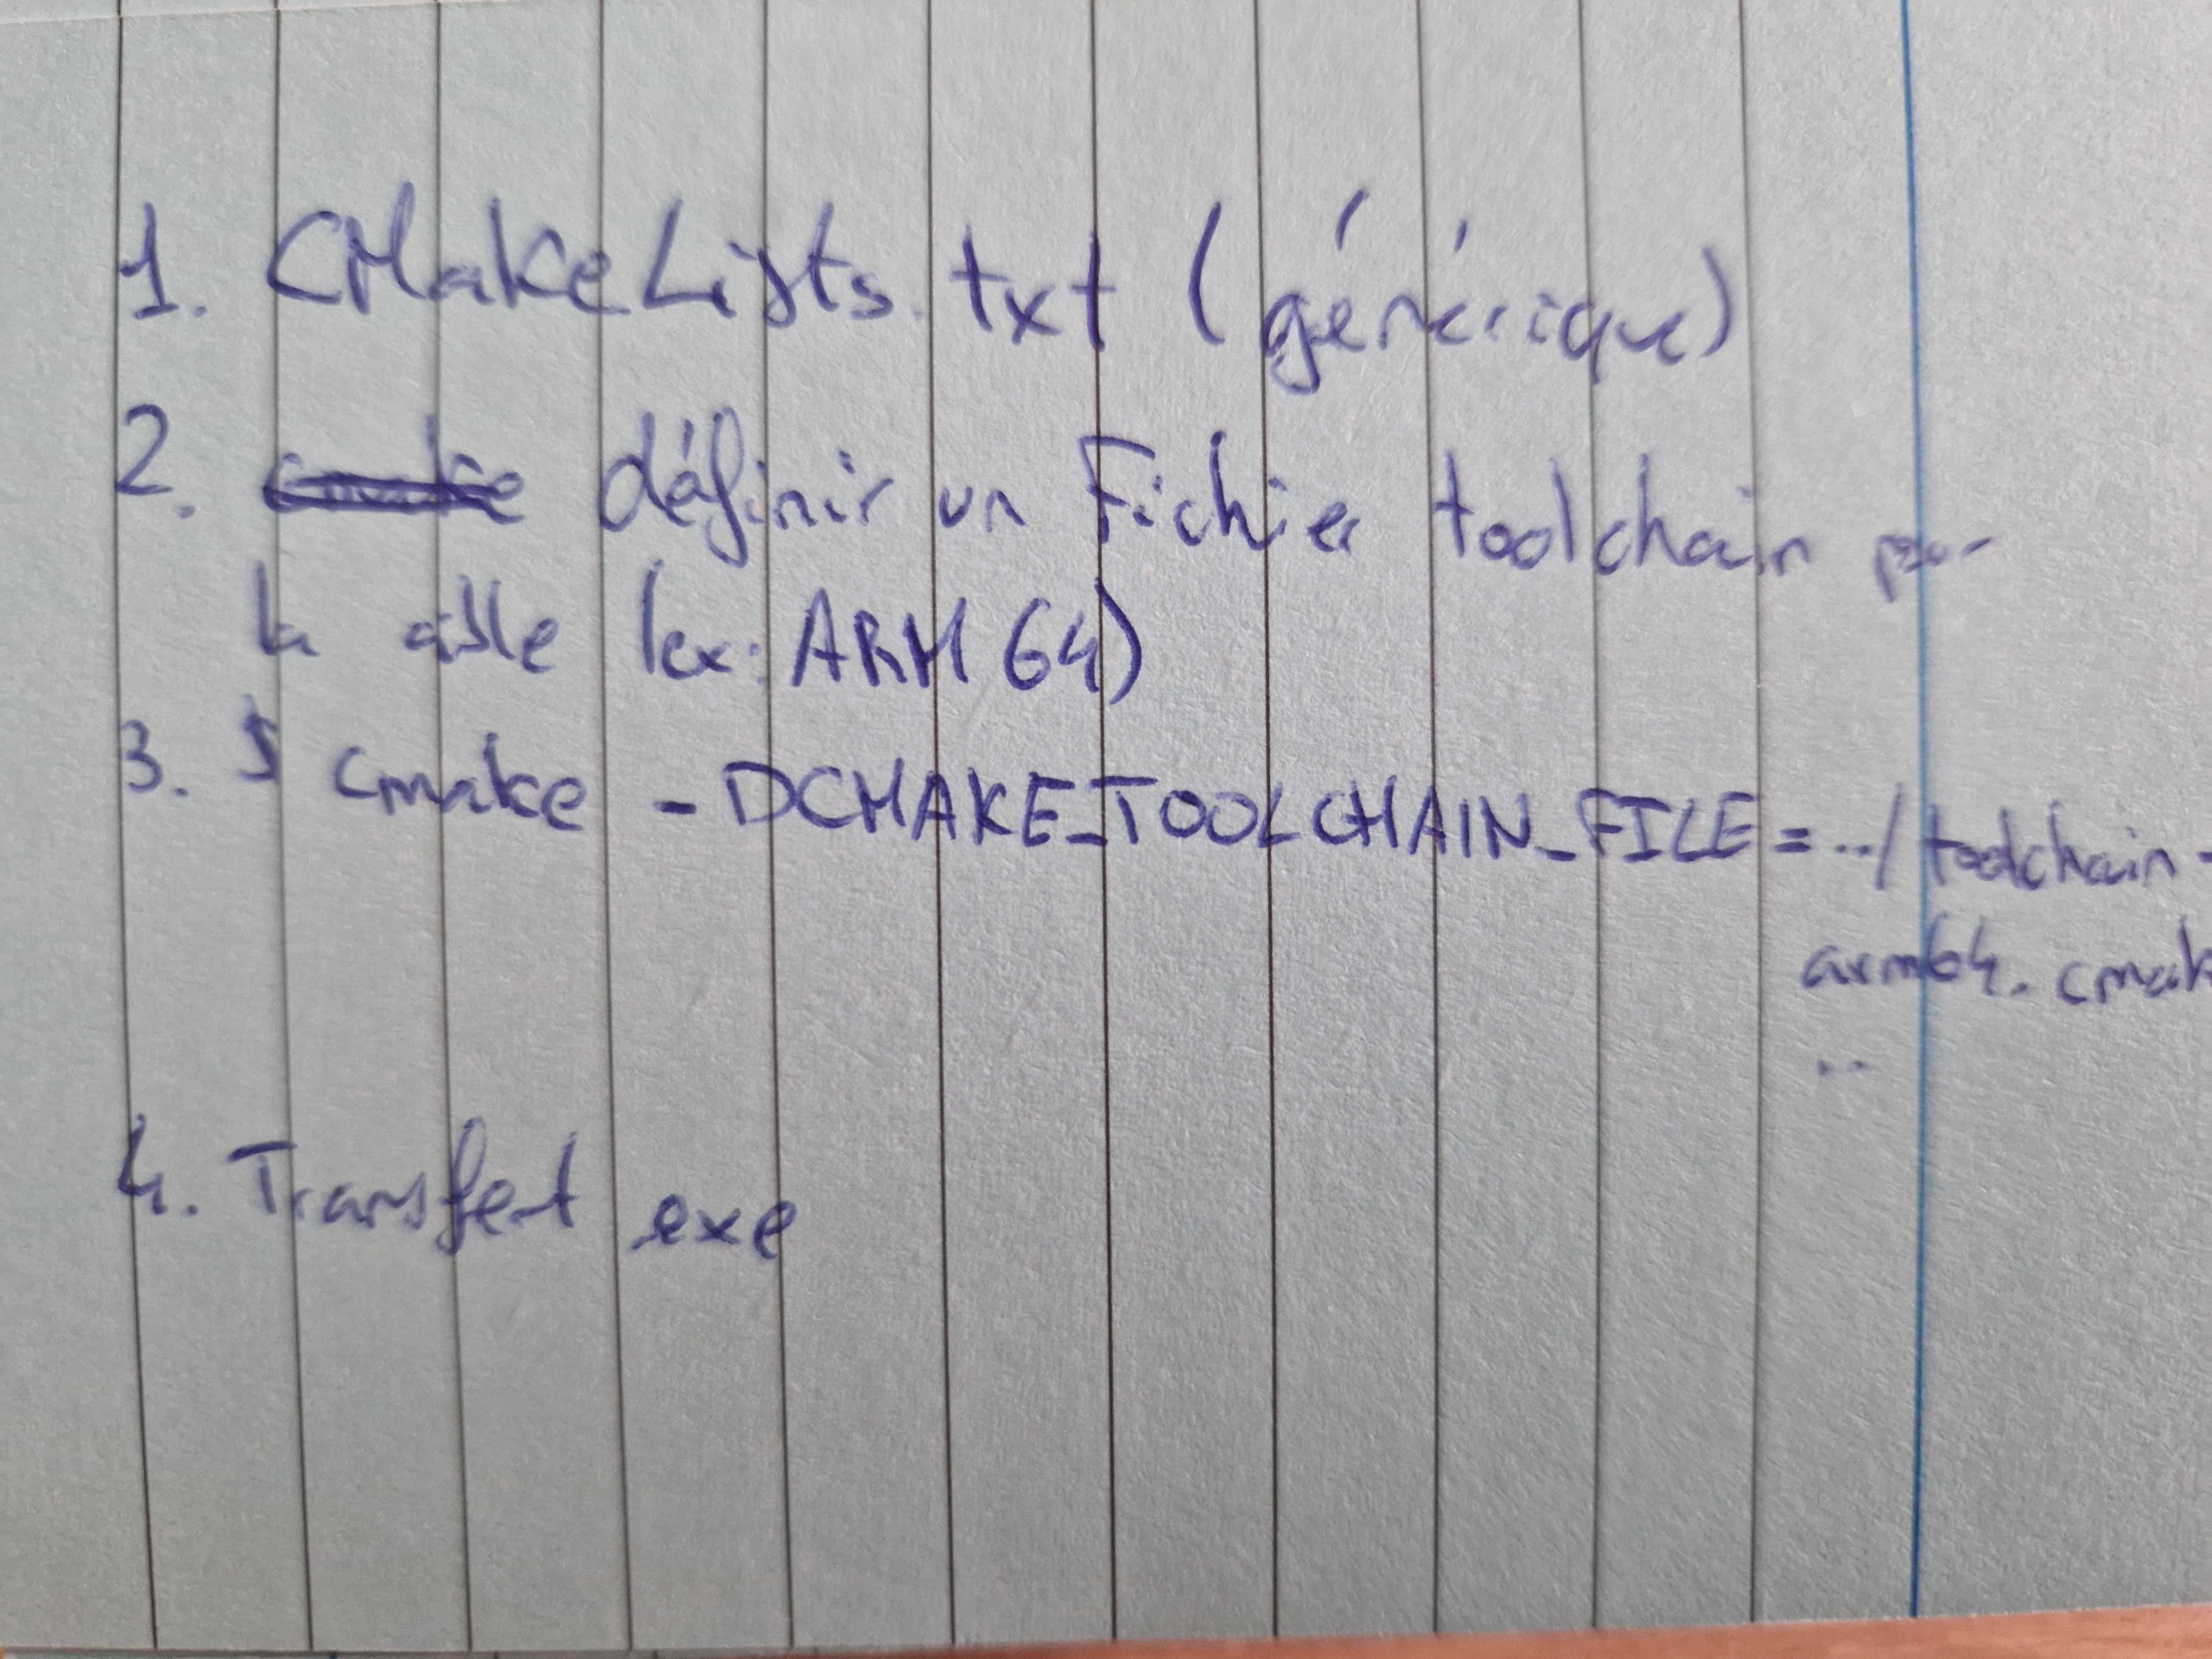 1. CMakeLists.txt (générique)
2. définir un Fichier toolchain pour
la cible (ex: ARM 64)
3. $ cmake -DCMAKE_TOOLCHAIN_FILE=../toolchain-
arm64.cmak
..
4. Transfert exe